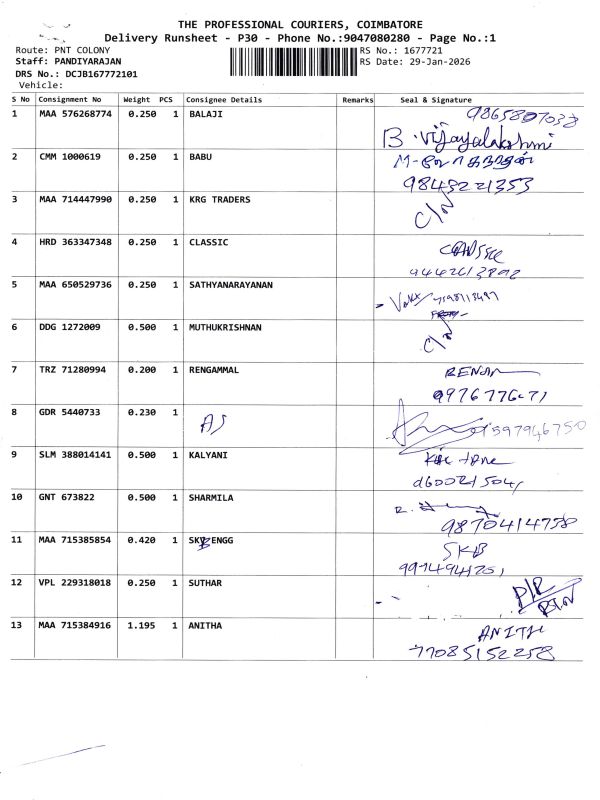 THE PROFESSIONAL COURIERS, COIMBATORE
Delivery Runsheet - P30 - Phone No.:9047080280 - Page No.:1
Route: PNT COLONY
RS No.: 1677721
Staff: PANDIYARAJAN
RS Date: 29-Jan-2026
DRS No.: DCJB167772101
Vehicle:
S No Consignment No Weight PCS Consignee Details Remarks Seal & Signature
1 MAA 576268774 0.250 1 BALAJI
B. Vijayalakshmi
2 CMM 1000619 0.250 1 BABU
9843221353
3 MAA 714447990 0.250 1 KRG TRADERS
4 HRD 363347348 0.250 1 CLASSIC
5 MAA 650529736 0.250 1 SATHYANARAYANAN
6 DDG 1272009 0.500 1 MUTHUKRISHNAN
7 TRZ 71280994 0.200 1 RENGAMMAL
8 GDR 5440733 0.230 1 AS
9 SLM 388014141 0.500 1 KALYANI
10 GNT 673822 0.500 1 SHARMILA
9870414738
11 MAA 715385854 0.420 1 SKB ENGG SKB
12 VPL 229318018 0.250 1 SUTHAR
13 MAA 715384916 1.195 1 ANITHA
77085152258